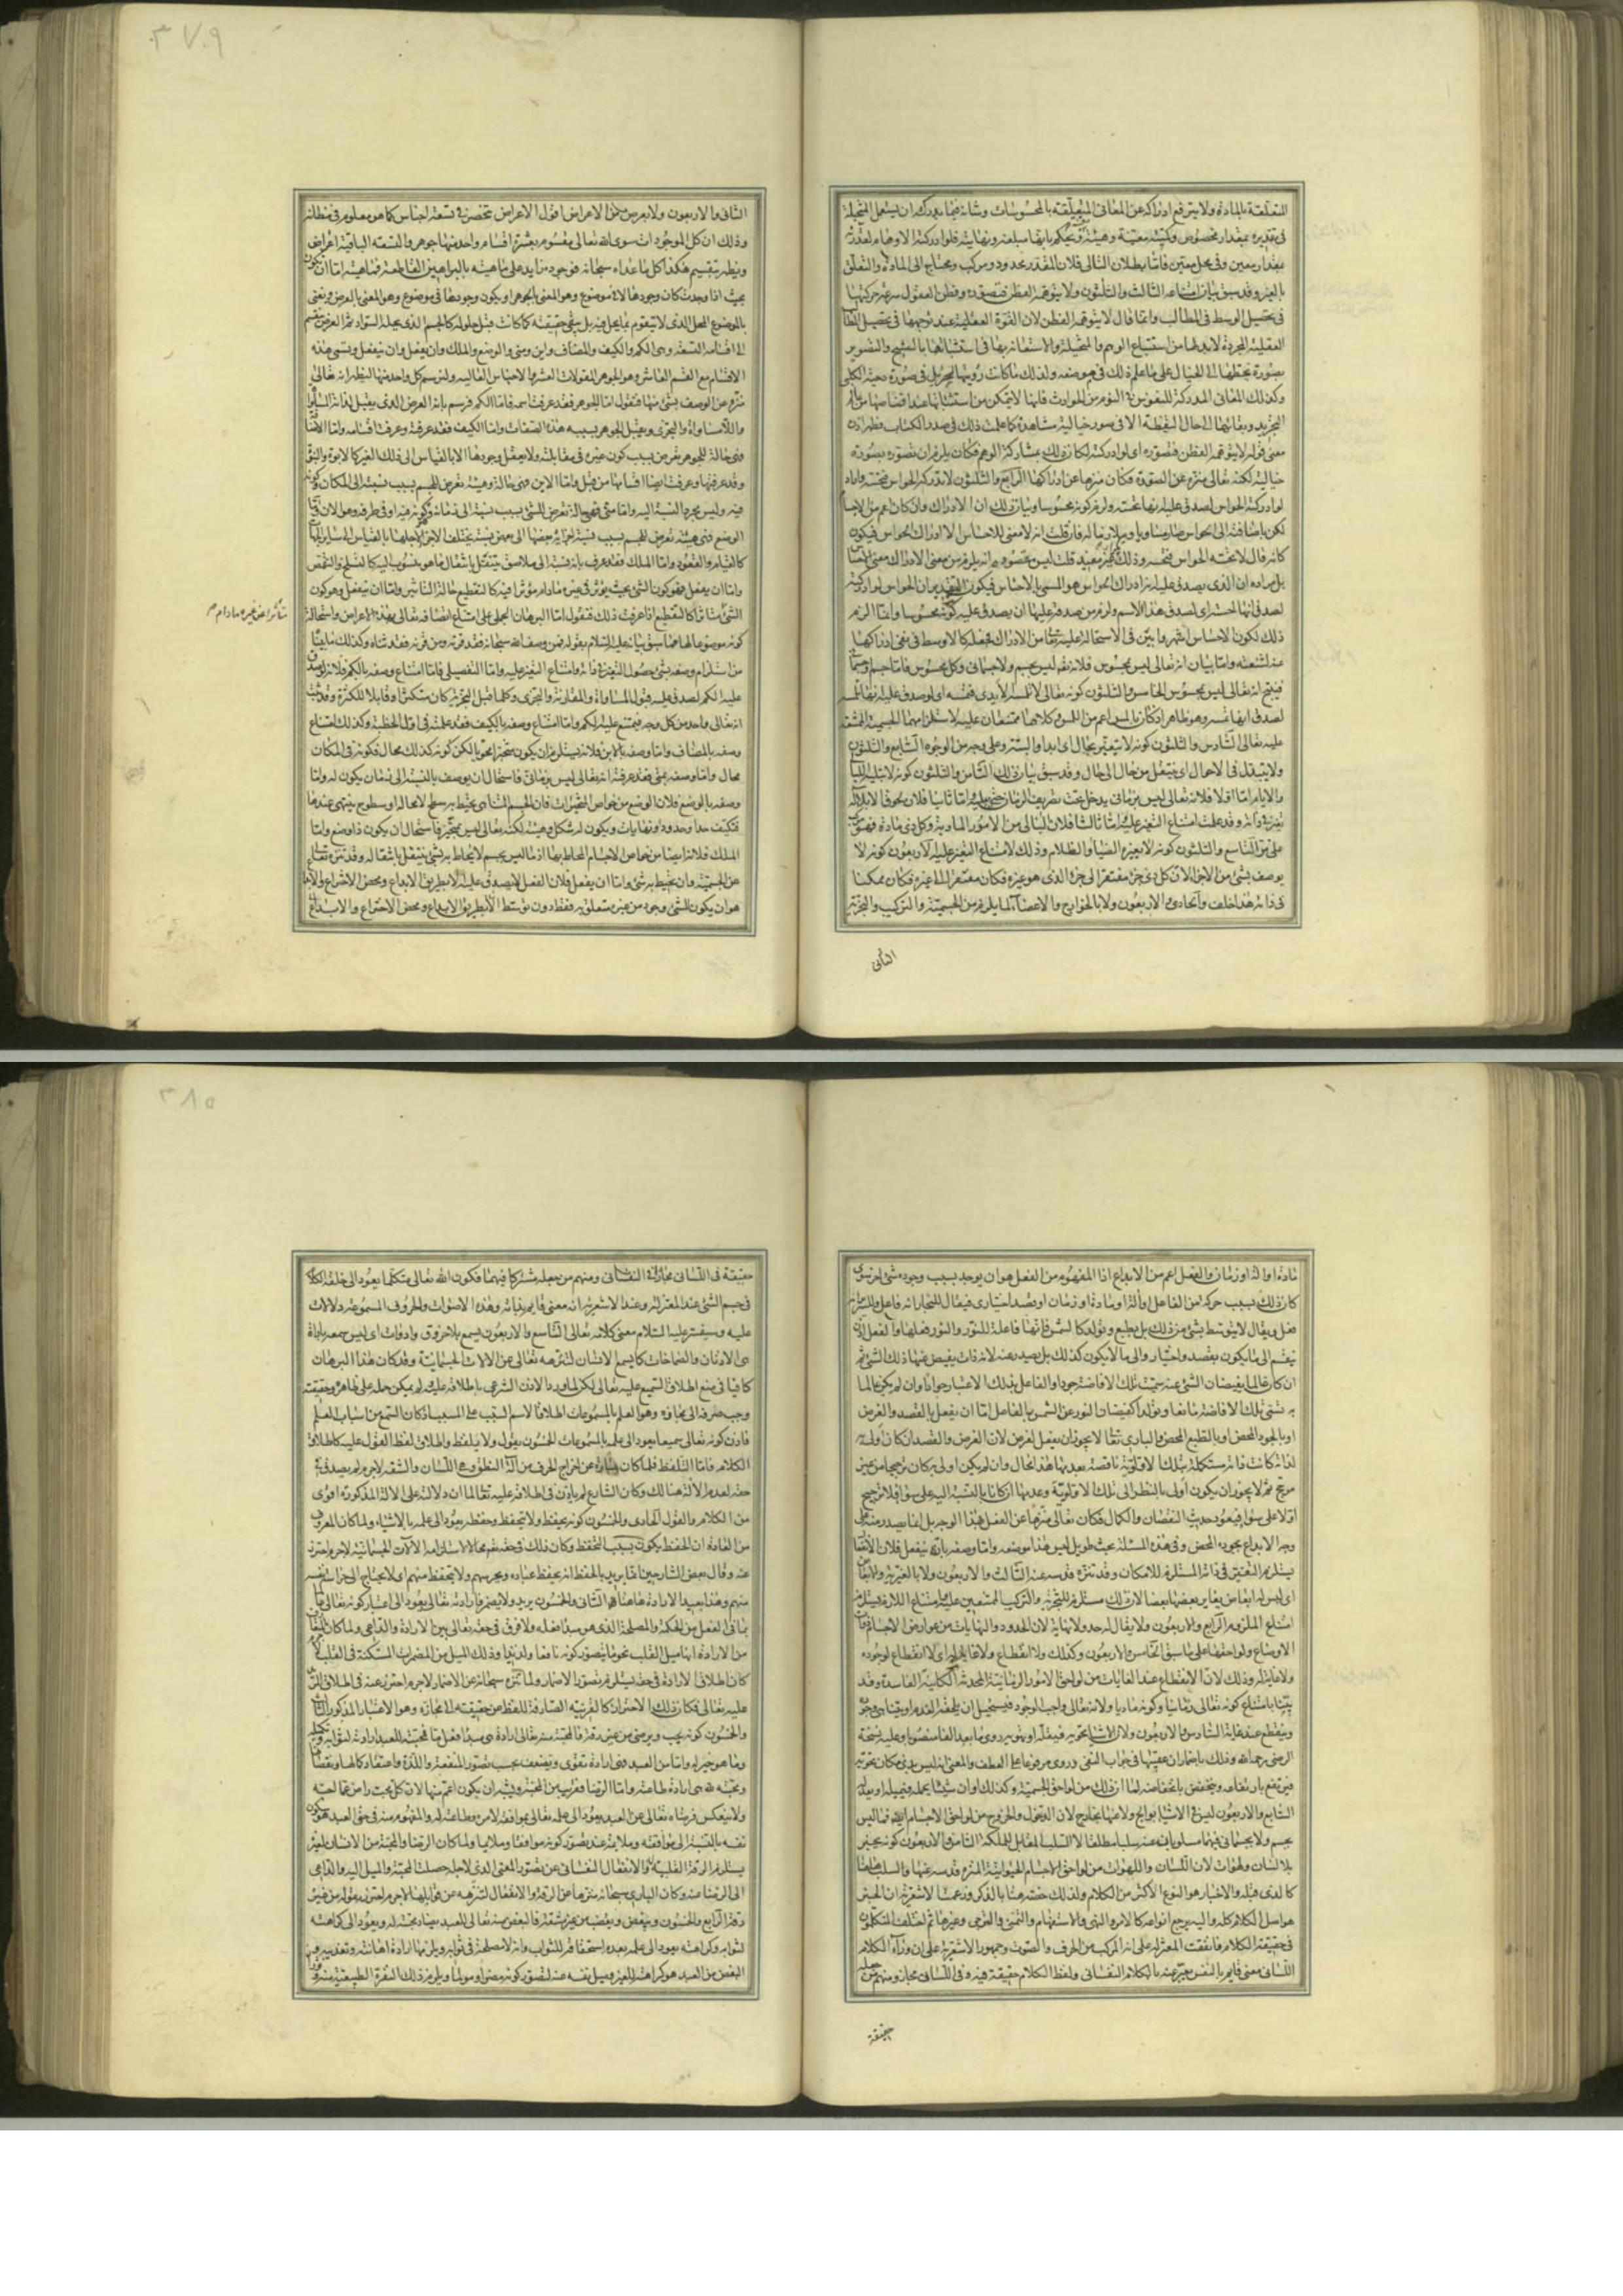 المتعلقة بالمادة ولا يترفع ادراكه عن المعانى المتعلقة بالمحسوسات وشانه فيما يدركه ان يستعمل المتخيلة
فى تقديره بمقدار مخصوص وكيفية معينة وهيئة ويحكم بانها مبلغه ونهايته فلو ادركته الاوهام لقدرته
بمقدار معين وفى محل معين فاما بطلان التالى فلان المقدر محدود ومركب ومحتاج الى المادة والتعلق
بالغير وقد سبق بيان امتناعه الثالث والثلثون ولا يتوهمه الفطن فتصوره وفطن العقول سرعة حركتها
فى تحصيل الوسط فى المطالب وانما قال لا يتوهمه الفطن لان القوة العقلية عند توجهها فى تحصيل المطا
العقلية المجردة لابد لها من استتباع الوهم والمتخيلة والاستعانة بها فى استثباتها بالشبح والتصوير
بصورة تحطها الى الخيال على ما علم ذلك فى موضعه ولذلك ما كانت رؤيتها لجبريل فى صورة دحية الكلبى
وكذلك المعانى المدركة للنفوس فى النوم من الحوادث فانها لا يتمكن من استثباتها عند اقتناصها من عالم
التجريد وبقائها الى حال اليقظة الا فى صور خيالية مشاهدة كما علمت ذلك فى صدر الكتاب فظهر اذن
معنى قوله لا يتوهمه الفطن فتصوره اى لو ادركته لكان ذلك بمشاركة الوهم فكان يلزم ان تصوره بصورة
خيالية لكنه تعالى منزه عن الصورة فكان منزها عن ادراكها الرابع والثلثون لا تدركه الحواس فتحسه واراد
لو ادركته الحواس لصدق عليه انها تحسه ولزم كونه محسوسا وبيان ذلك ان الادراك وان كان اعم من الاحسا
لكن باضافته الى الحواس صار مساويا
كانه قال لا تحسه الحواس فتحسه وذلك غير مفيد قلت ليس مقصوده انه يلزم من معنى الادراك معنى الاحساس
بل مراده ان الذى يصدق عليه انه ادراك الحواس هو المسمى بالاحساس فيكون التقدير ان الحواس لو ادركته
لصدق انها تحسه اى لصدق هذا الاسم ولزم من صدقه عليها ان يصدق عليه كونه محسوسا وانما الزم
ذلك لكون الاحساس اشهر وابين فى الاستحالة عليه تعالى من الادراك فجعله كالاوسط فى نفى ادراكها
عنه لشنعته واما بيان انه تعالى ليس بمحسوس فلانه تعالى ليس بجسم ولا جسمانى وكل محسوس فاما جسم او جسمانى
فينتج انه تعالى ليس بمحسوس الخامس والثلثون كونه تعالى لا تلمسه الايدى فتمسه اى لو صدق عليه انها تلمسه
لصدق انها تمسه وهو ظاهر اذ كان المس اعم من اللمس وكلاهما ممتنعان عليه لاستلزامهما الجسمية الممتنعة
عليه تعالى السادس والثلثون كونه لا يتغير بحال اى ابدا والبتة وعلى وجه من الوجوه السابع والثلثون
ولا يتبدل فى الاحوال اى ينتقل من حال الى حال وقد سبق بيان ذلك الثامن والثلثون كونه لا تبليه الليالى
والايام اما اولا فلانه تعالى ليس بزمانى يدخل تحت تصريف الزمان حتى يبليه واما ثانيا فلان لحوق الابلاء له
تغير فى ذاته وقد علمت امتناع التغير عليه واما ثالثا فلان البالى من الامور المادية وكل ذى مادة فهو مركب
على ما مر التاسع والثلثون كونه لا يغيره الضياء والظلام وذلك لامتناع التغير عليه الاربعون كونه لا
يوصف بشئ من الاجزاء لان كل ذى جزء مفتقر الى جزئه الذى هو غيره فكان مفتقرا الى غيره فكان ممكنا
فى ذاته هذا خلف والحادى والاربعون ولا بالجوارح والاعضاء لما يلزم من الجسمية والتركيب والتجزية
الثانى
٣٧٩
الثانى والاربعون ولا بعرض من الاعراض اقول الاعراض تنحصر فى تسعة اجناس كما هو معلوم فى مظانه
وذلك ان كل الموجودات سوى الله تعالى مقسوم بعشرة اقسام واحد منها جوهر والتسعة الباقية اعراض
ويظهر بتقسيم هكذا كل ما عداه سبحانه فوجوده زايد على ماهيته بالبراهين القاطعة فماهيته اما ان يكون
بحيث اذا وجدت كان وجودها لا فى موضوع وهو المعنى بالجوهر او يكون وجودها فى موضوع وهو المعنى بالعرض ونعنى
بالموضوع المحل الذى لا يتقوم بما يحل فيه بل يبقى حقيقته كما كانت قبل حلوله كالجسم الذى يحله السواد ثم العرض ينقسم
الى اقسامه التسعة وهى الكم والكيف والمضاف واين ومتى والوضع والملك وان يفعل وان ينفعل وتسمى هذه
الاقسام مع القسم العاشر وهو الجوهر المقولات العشر والاجناس العالية ولنرسم كل واحد منها ليظهر انه تعالى
منزه عن الوصف بشئ منها فنقول اما الجوهر فقد عرفت رسمه فاما الكم فرسم بانه العرض الذى يقبل لذاته المساواة
واللامساواة والتجزى ويقبل الجوهر بسببه هذه الصفات واما الكيف فقد عرفته وعرفت اقسامه واما الاضافة
فهى حالة للجوهر تعرض بسبب كون غيره فى مقابلته ولا يعقل وجودها الا بالقياس الى ذلك الغير كالابوة والبنوة
وقد عرفتها وعرفت ايضا اقسامها من قبل واما الاين فهى حالة وهيئة تعرض للجسم بسبب نسبته الى المكان وكونه
فيه وليس مجرد النسبة اليه واما متى فهى حالة تعرض للشئ بسبب نسبته الى زمانه وكونه فيه او فى طرفه وهو الان واما
الوضع فهى هيئة تعرض للجسم بسبب نسبة اجزائه بعضها الى بعض نسبة تختلف الاجزاء لاجلها بالقياس الى ساير الجهات
كالقيام والقعود واما الملك فقد عرف بانه نسبة الى ملاصق ينتقل بانتقال ما هو منسوب اليه كالتسلح والتقمص
واما ان يفعل فهو كون الشئ بحيث يؤثر فى غيره مادام مؤثرا فيه كالتقطيع حالة التأثير واما ان ينفعل وهو كون
الشئ متأثرا كالتقطع اذا عرفت ذلك فنقول اما البرهان الجملى على امتناع اتصافه تعالى بهذه الاعراض واستحالة
كونه موضوعا لها فما سبق بيانه عليه السلام بقوله فمن وصف الله سبحانه فقد قرنه ومن قرنه فقد ثناه وكذلك ما بينا
من استلزام وصفه بشئ حصول التغير فى ذاته وامتناع التغير عليه واما التفصيلى فاما امتناع وصفه بالكم فلانه لو صدق
عليه الكم لصدق عليه قبول المساواة والمقارنة والتجزى وكلما قبل التجزية كان متكثرا وقابلا للكثرة وقد ثبت
انه تعالى واحد من كل وجه فيمتنع عليه الكم واما امتناع وصفه بالكيف فقد علمت فى اول الخطبة وكذلك امتناع
وصفه بالمضاف واما وصفه بالاين فلانه يستلزم ان يكون متحيزا محويا لكن كونه كذلك محال فكونه فى المكان
محال واما وصفه بمتى فقد عرفت انه تعالى ليس بزمانى فاستحال ان يوصف بالنسبة الى زمان يكون له واما
وصفه بالوضع فلان الوضع من خواص المتحيزات فان الجسم المتناهى يحيط به سطح لا محالة او سطوح ينتهى عندها
فتكيف حدا وحدودا ونهايات ويكون له شكل وهيئة لكنه تعالى ليس بمتحيز فاستحال ان يكون ذا وضع واما
الملك فلانه ايضا من خواص الاجسام المحاط بها اذ ما ليس بجسم لا يحاط به شئ ينتقل بانتقاله وقد تنزه تعالى
عن الجسمية وان يحيط به شئ واما ان يفعل فلان الفعل لا يصدق عليه الا بطريق الابداع ومحض الاختراع والابداع
هو ان يكون للشئ وجود من غيره متعلق به فقط دون توسط الا بطريق الابداع ومحض الاختراع والابداع
تأثرا عن غيره مادام
مادة او الة او زمان والفعل اعم من الابداع اذا المفهوم من الفعل هو ان يوجد بسبب وجوده شئ اخر سوى
كان ذلك بسبب حركة من الفاعل او الة او مادة او زمان او قصد اختيارى فيقال للنجار انه فاعل وللسرير انه
فعل ويقال لا بتوسط بشئ من ذلك بل بطبع وتولد كالشمس فانها فاعلة للنور والنور فعلها والفعل اذن
ينقسم الى ما يكون بقصد واختيار والى ما لا يكون كذلك بل يصدر عنه لانه ذات يفيض عنها ذلك الشئ ثم
ان كان عالما بفيضان الشئ عنه سميت تلك الافاضة جودا والفاعل بذلك الاعتبار جوادا وان لم يكن عالما
به سمى تلك الافاضة طبعا وتولدا كفيضان النور عن الشمس والفاعل اما ان يفعل بالقصد والغرض
او بالجود المحض او بالطبع المحض والبارى تعالى لا يجوز ان يفعل لغرض لان الغرض والقصد ان كان اولى به
لذاته كانت ذاته مستكملة بتلك الاولوية ناقصة بعدمها هذا محال وان لم يكن اولى به كان ترجيحا من غير
مرجح ثم لا يجوز ان يكون اولى بالنظر الى
وجه الابداع بجوده المحض وفى هذه المسئلة بحث طويل ليس هذا موضعه واما وصفه بان ينفعل فلان الانفعال
يستلزم التغير فى ذاته المستلزم للامكان وقد تنزه قدسه عنه الثالث والاربعون ولا بالغيرية والابعاض
اى ليس له ابعاض يغاير بعضها بعضا لان ذلك مستلزم للتجزية والتركيب الممتنعين عليه وامتناع اللازم يستلزم
امتناع الملزوم الرابع والاربعون ولا يقال له حد ولا نهاية لان الحدود والنهايات من عوارض الاجسام ذات
الاوضاع ولواحقها على ما سبق الخامس والاربعون وكذلك ولا انقطاع ولا غاية اى لا انقطاع لوجوده
ولا غاية له وذلك لان الانقطاع عند الغايات من لواحق الامور الزمانية المحدثة الكائنة الفاسدة وقد
بينا بامتناع كونه تعالى زمانيا وكونه ماديا ولانه تعالى واجب الوجود فيستحيل ان يلحقه العدم
وينقطع عند غاية السادس والاربعون ولا ان الاشياء تحويه فتقله او تهويه
الرضى رحمه الله وذلك باضمار ان عقيبها فى جواب النفى وروى مرفوعا على العطف والمعنى انه ليس بذى مكان يحويه
فيرتفع بارتفاعه وينخفض بانخفاضه لما ان ذلك من لواحق الجسمية وكذلك او ان شيئا يحمله فيميله او يعدله
السابع والاربعون ليس فى الاشياء بوالج ولا عنها بخارج لان الدخول والخروج من لواحق الاجسام ايضا فما ليس
بجسم ولا جسمانى فهما مسلوبان عنه سلبا مطلقا لا السلب المقابل للملكة الثامن والاربعون كونه يخبر
بلا لسان ولهوات لان اللسان واللهوات من لواحق الاجسام الحيوانية المنزه قدسه عنها والسلب ههنا
كالذى قبله والاخبار هو النوع الاكثر من الكلام ولذلك خصه هنا بالذكر وزعمت الاشعرية ان الخبر
هو اصل الكلام كله واليه يرجع انواعه كالامر والنهى والاستفهام والتمنى والترجى وغيرها ثم اختلف المتكلمون
فى حقيقة الكلام فاتفقت المعتزلة على انه المركب من الحرف والصوت وجمهور الاشعرية على ان وراء الكلام
اللسانى معنى قايم بالنفس يعبر عنه بالكلام النفسانى ولفظ الكلام حقيقة فيه وفى اللسانى مجاز ومنهم من جعله
حقيقة
٣٨٥
حقيقة فى اللسانى مجازا فى النفسانى ومنهم من جعله مشتركا فيهما فكون الله تعالى متكلما يعود الى خلقه الكلام
فى جسم الشئ عند المعتزلة وعند الاشعرية انه معنى قايم بذاته وهذه الاصوات والحروف المسموعة دلالات
عليه وسيفسر عليه السلام معنى كلامه تعالى التاسع والاربعون يسمع بلا خروق وادوات اى ليس سمعه باداة
هى الاذنان والصماخات كما يسمع الانسان لتنزهه تعالى عن الالات الجسمانية وقد كان هذا البرهان
كافيا فى منع اطلاق السميع عليه تعالى لكن لما ورد الاذن الشرعى باطلاقه عليه ولم يمكن حمله على ظاهره وحقيقته
وجب صرفه الى مجازه وهو العلم بالمسموعات اطلاقا لاسم السبب على المسبب اذ كان السمع من اسباب العلم
فاذن كونه تعالى سميعا يعود الى علمه بالمسموعات الخمسون يقول ولا يلفظ واطلاق لفظ القول عليه كاطلاق
الكلام فاما التلفظ فلما كان عبارة عن اخراج الحرف من الة النطق وهى اللسان والشفة لاجرم لم يصدق فى
حقه لعدم الالة هنالك وكان الشارع لم ياذن فى اطلاقه عليه تعالى لما ان دلالته على الالة المذكورة اقوى
من الكلام والقول الحادى والخمسون كونه يحفظ ولا يتحفظ وحفظه يعود الى علمه بالاشياء ولما كان المعروف
من العادة ان الحفظ يكون بسبب التحفظ وكان ذلك فى حقه تعالى محالا لاستلزامه الالات الجسمانية لاجرم احترز
عنه وقال بعض الشارحين انما يريد بالحفظ انه يحفظ عباده ويحرسهم ولا يتحفظ منهم اى لا يحتاج الى حراسة نفسه
منهم وهذا بعيد الارادة هاهنا الثانى والخمسون يريد ولا يضمر فارادته تعالى يعود الى اعتبار كونه تعالى عالما
بما فى الفعل من الحكمة والمصلحة الذى هو مبدا فعله ولا فرق فى حقه تعالى بين الارادة والداعى ولما كان المتعارف
من الارادة انها ميل القلب نحو ما يتصور كونه نافعا ولذيذا وذلك الميل من المضمرات المستكنة فى القلب
كان اطلاق الارادة فى حقه يستلزم تصور الاضمار ولما تنزه سبحانه عن الاضمار لاجرم احترز عنه فى اطلاق المريد
عليه تعالى فكان ذلك الاحتراز كالقرينة الصارفة للفظ من حقيقته الى مجازه وهو الاعتبار المذكور الثالث
والخمسون كونه يحب ويرضى من غير رقة فالمحبة منه تعالى ارادة هى مبدا فعل ما فمحبته للعبد ارادته لثوابه وتكميله
وما هو خير له واما من العبد فهى ارادة تقوى وتضعف بحسب تصور المنفعة واللذة واعتقاد كمالها ونقصانها
ومحبته لله هى ارادة طاعته واما الرضا فقريب من المحبة ويشبه ان يكون اعم منها لان كل محب راض عما احبه
ولا ينعكس فرضاه تعالى عن العبد يعود الى علمه تعالى بموافقته لامره وطاعته له والمفهوم منه فى حق العبد هو سكون
نفسه بالنسبة الى موافقه وملايمه عند تصور كونه موافقا وملايما ولما كان الرضا والمحبة من الانسان لغيره
يستلزم الرقة القلبية والانفعال النفسانى عن تصور المعنى الذى لاجله حصلت المحبة والميل اليه والداعى
الى الرضا عنه وكان البارى سبحانه منزها عن الرقة والانفعال لتنزهه عن قوابلها لاجرم احترز بقوله من غير
رقة الرابع والخمسون ويبغض ويغضب من غير مشقة فالبغض منه تعالى للعبد يضاد محبته له ويعود الى كراهته
لثوابه وكراهته يعود الى علمه بعدم استحقاقه للثواب وانه لا مصلحة فى ثوابه ويلزمها ارادة اهانته وتعذيبه
البغض من العبد هو كراهته للغير وميل نفسه عنه لتصور كونه مضرا ومولما ويلزم ذلك النفرة الطبيعية منه